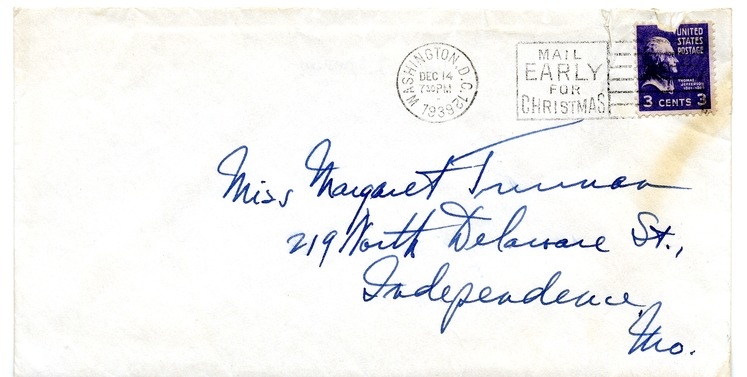 WASHINGTON, D.C. 12
DEC 14
7:30 PM
1939
MAIL
EARLY
FOR
CHRISTMAS
UNITED
STATES
POSTAGE
THOMAS
JEFFERSON
1801-1809
3 CENTS 3
Miss Margaret Truman
219 North Delaware St.,
Independence,
Mo.